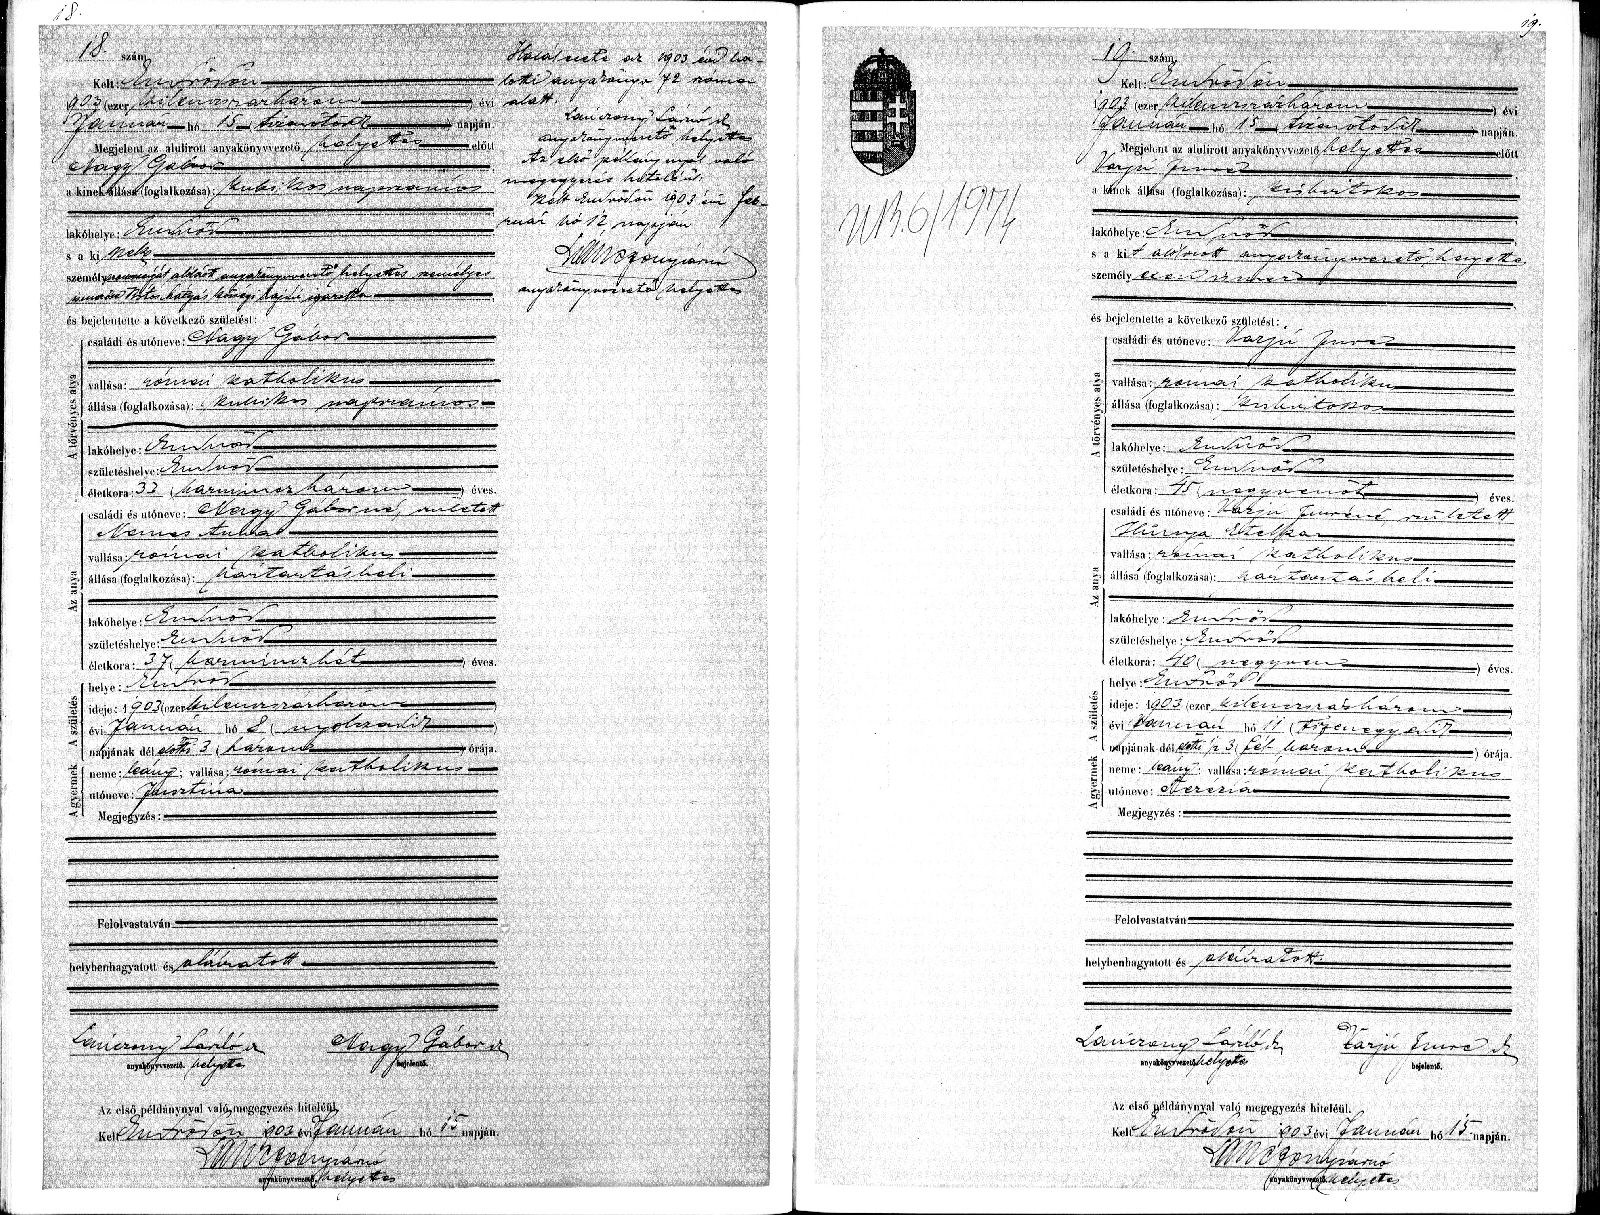 18.
18. szám.
Kelt: Endrődön
1903 (ezer kilenczszázhárom ) évi
Január hó 15 tizenötödik napján.
Megjelent az alulirott anyakönyvvezető helyettes előtt
Nagy Gábor
a kinek állása (foglalkozása): kubikos napszámos
lakóhelye: Endrőd
s a ki nek
személy anyakönyvvezető helyettes személyes
és bejelentette a következő születést:
A törvényes atya
családi és utóneve: Nagy Gábor
vallása: római katholikus
állása (foglalkozása): kubikos napszámos
lakóhelye: Endrőd
születéshelye: Endrőd
életkora: 33 ( harminczhárom ) éves.
Az anya
családi és utóneve: Nagy Gáborné, született
Nemes Anna
vallása: római katholikus
állása (foglalkozása): háztartásbeli
lakóhelye: Endrőd
születéshelye: Endrőd
életkora: 37 ( harminczhét ) éves.
A születés
helye: Endrőd
ideje: 1903 (ezer kilenczszázhárom )
évi Január hó 8 ( nyolczadik )
napjának dél előtti 3 ( három ) órája.
A gyermek
neme: leány; vallása: római katholikus
utóneve: Jusztina
Megjegyzés:
Felolvastatván
helybenhagyatott és aláiratott
Lánczony László
anyakönyvvezető. helyettes
Nagy Gábor
bejelentő.
Az első példánynyal való megegyezés hiteléül.
Kelt Endrődön 1903 évi Január hó 15 napján.
anyakönyvvezető. helyettes
Halálesete az 1903 évi ha-
lotti anyakönyv 42 szám
alatt.
Lánczony László
anyakönyvvezető helyettes
Az első példánynyal való
megegyezés hiteléül.
Kelt Endrődön 1903 évi feb-
ruár hó 12 napján
anyakönyvvezető helyettes
19.
19. szám.
Kelt: Endrődön
1903 (ezer kilenczszázhárom ) évi
Január hó 15 tizenötödik napján.
Megjelent az alulirott anyakönyvvezető helyettes előtt
Varjú Imre
a kinek állása (foglalkozása): kisbirtokos
lakóhelye: Endrőd
s a kit alulirott anyakönyvvezető helyettes
személyesen ismer
és bejelentette a következő születést:
A törvényes atya
családi és utóneve: Varjú Imre
vallása: római katholikus
állása (foglalkozása): kisbirtokos
lakóhelye: Endrőd
születéshelye: Endrőd
életkora: 45 ( negyvenöt ) éves.
Az anya
családi és utóneve: Varjú Imréné született
Hunya Etelka
vallása: római katholikus
állása (foglalkozása): háztartásbeli
lakóhelye: Endrőd
születéshelye: Endrőd
életkora: 40 ( negyven ) éves.
A születés
helye: Endrőd
ideje: 1903 (ezer kilenczszázhárom )
évi Január hó 11 ( tizenegyedik )
napjának dél előtti 1/2 3 ( fél három ) órája.
A gyermek
neme: leány; vallása: római katholikus
utóneve: Terézia
Megjegyzés:
Felolvastatván
helybenhagyatott és aláiratott.
Lánczony László
anyakönyvvezető. helyettes
Varjú Imre
bejelentő.
Az első példánynyal való megegyezés hiteléül.
Kelt Endrődön 1903 évi Január hó 15 napján.
anyakönyvvezető. helyettes